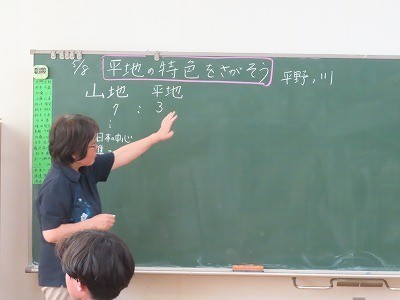 5/8 平地の特色をさがそう 平野,川
山地 平地
7 : 3
日本の中心